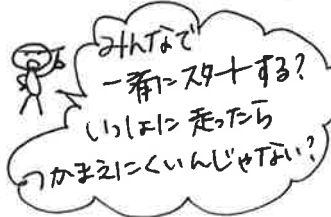 みんなで
一斉にスタートする?
いっしょに走ったら
つかまえにくいんじゃない?